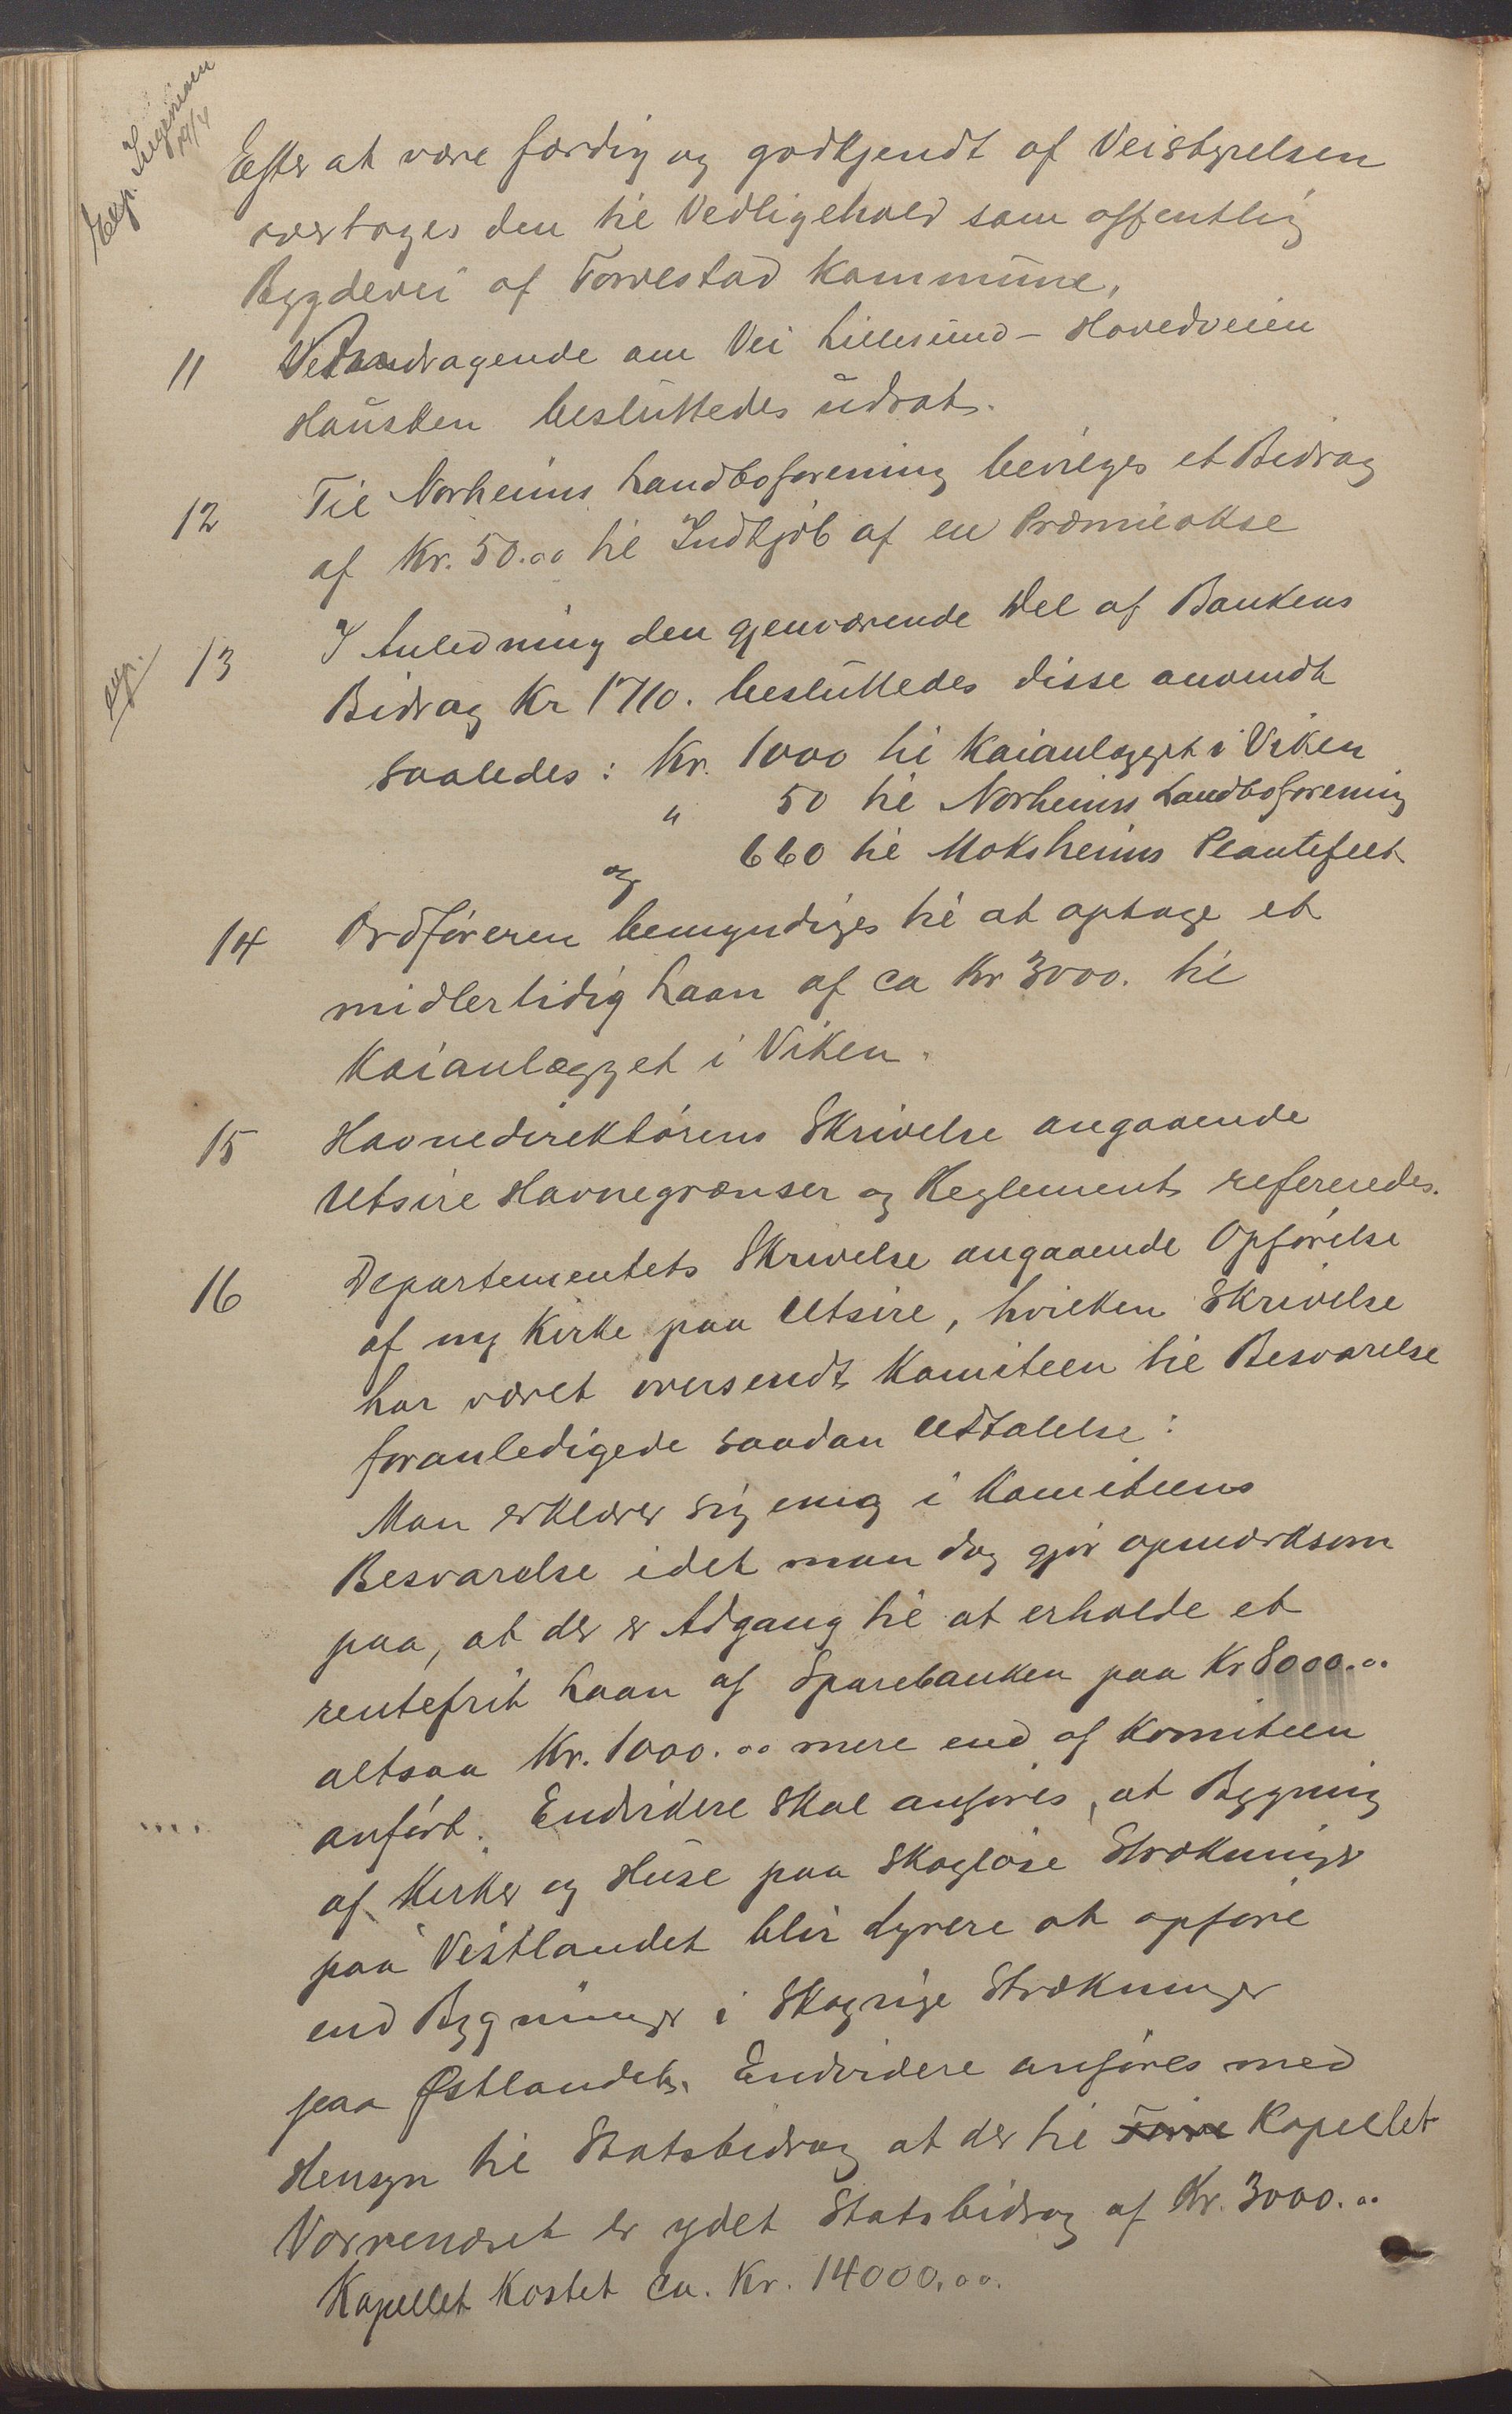 Exp. Ingeniøren
19/4
Efter at være færdig og godkjendt af Veistyrelsen
overtages den til Vedligehold som offentlig
Bygdevei af Torvestad Kommune.
11 Andragende om Vei Lillesund - Hovedveien
Hausken besluttedes udsat.
12 Til Norheims Landboforening bevilges et Bidrag
af Kr. 50.00 til Indkjøb af en Præmieokse
exp.
13 I Anledning den gjenværende Del af Bankens
Bidrag Kr 1710. besluttedes disse anvendt
saaledes: Kr. 1000 til Kaianlægget i Viken
" 50 til Norheims Landboforening
og 660 til Moksheims Plantefelt
14 Ordføreren bemyndiges til at optage et
midlertidig Laan af ca Kr 3000. til
Kaianlægget i Viken.
15 Havnedirektørens Skrivelse angaaende
Utsire Havnegrænser og Reglement refereredes.
16 Departementets Skrivelse angaaende Opførelse
af ny Kirke paa Utsire, hvilken Skrivelse
har været oversendt Komiteen til Besvarelse
foranledigede saadan Udtalelse:
Man erklærer sig enig i Komiteens
Besvarelse idet man dog gjør opmærksom
paa, at der er Adgang til at erholde et
rentefrit Laan af Sparebanken paa Kr 8000.00
altsaa Kr. 1000.00 mere end af Komiteen
anført. Endvidere skal anføres, at Bygning
af Kirker og Huse paa Skogløse Strækninger
paa Vestlandet blir dyrere at opføre
end Bygninger i Skogrige Strækninger
paa Østlandet. Endvidere anføres med
Hensyn til Statsbidrag at der til Kapellet
Vormenæset er ydet Statsbidrag af Kr. 3000.00
Kapellet kostet ca. Kr. 14000.00.